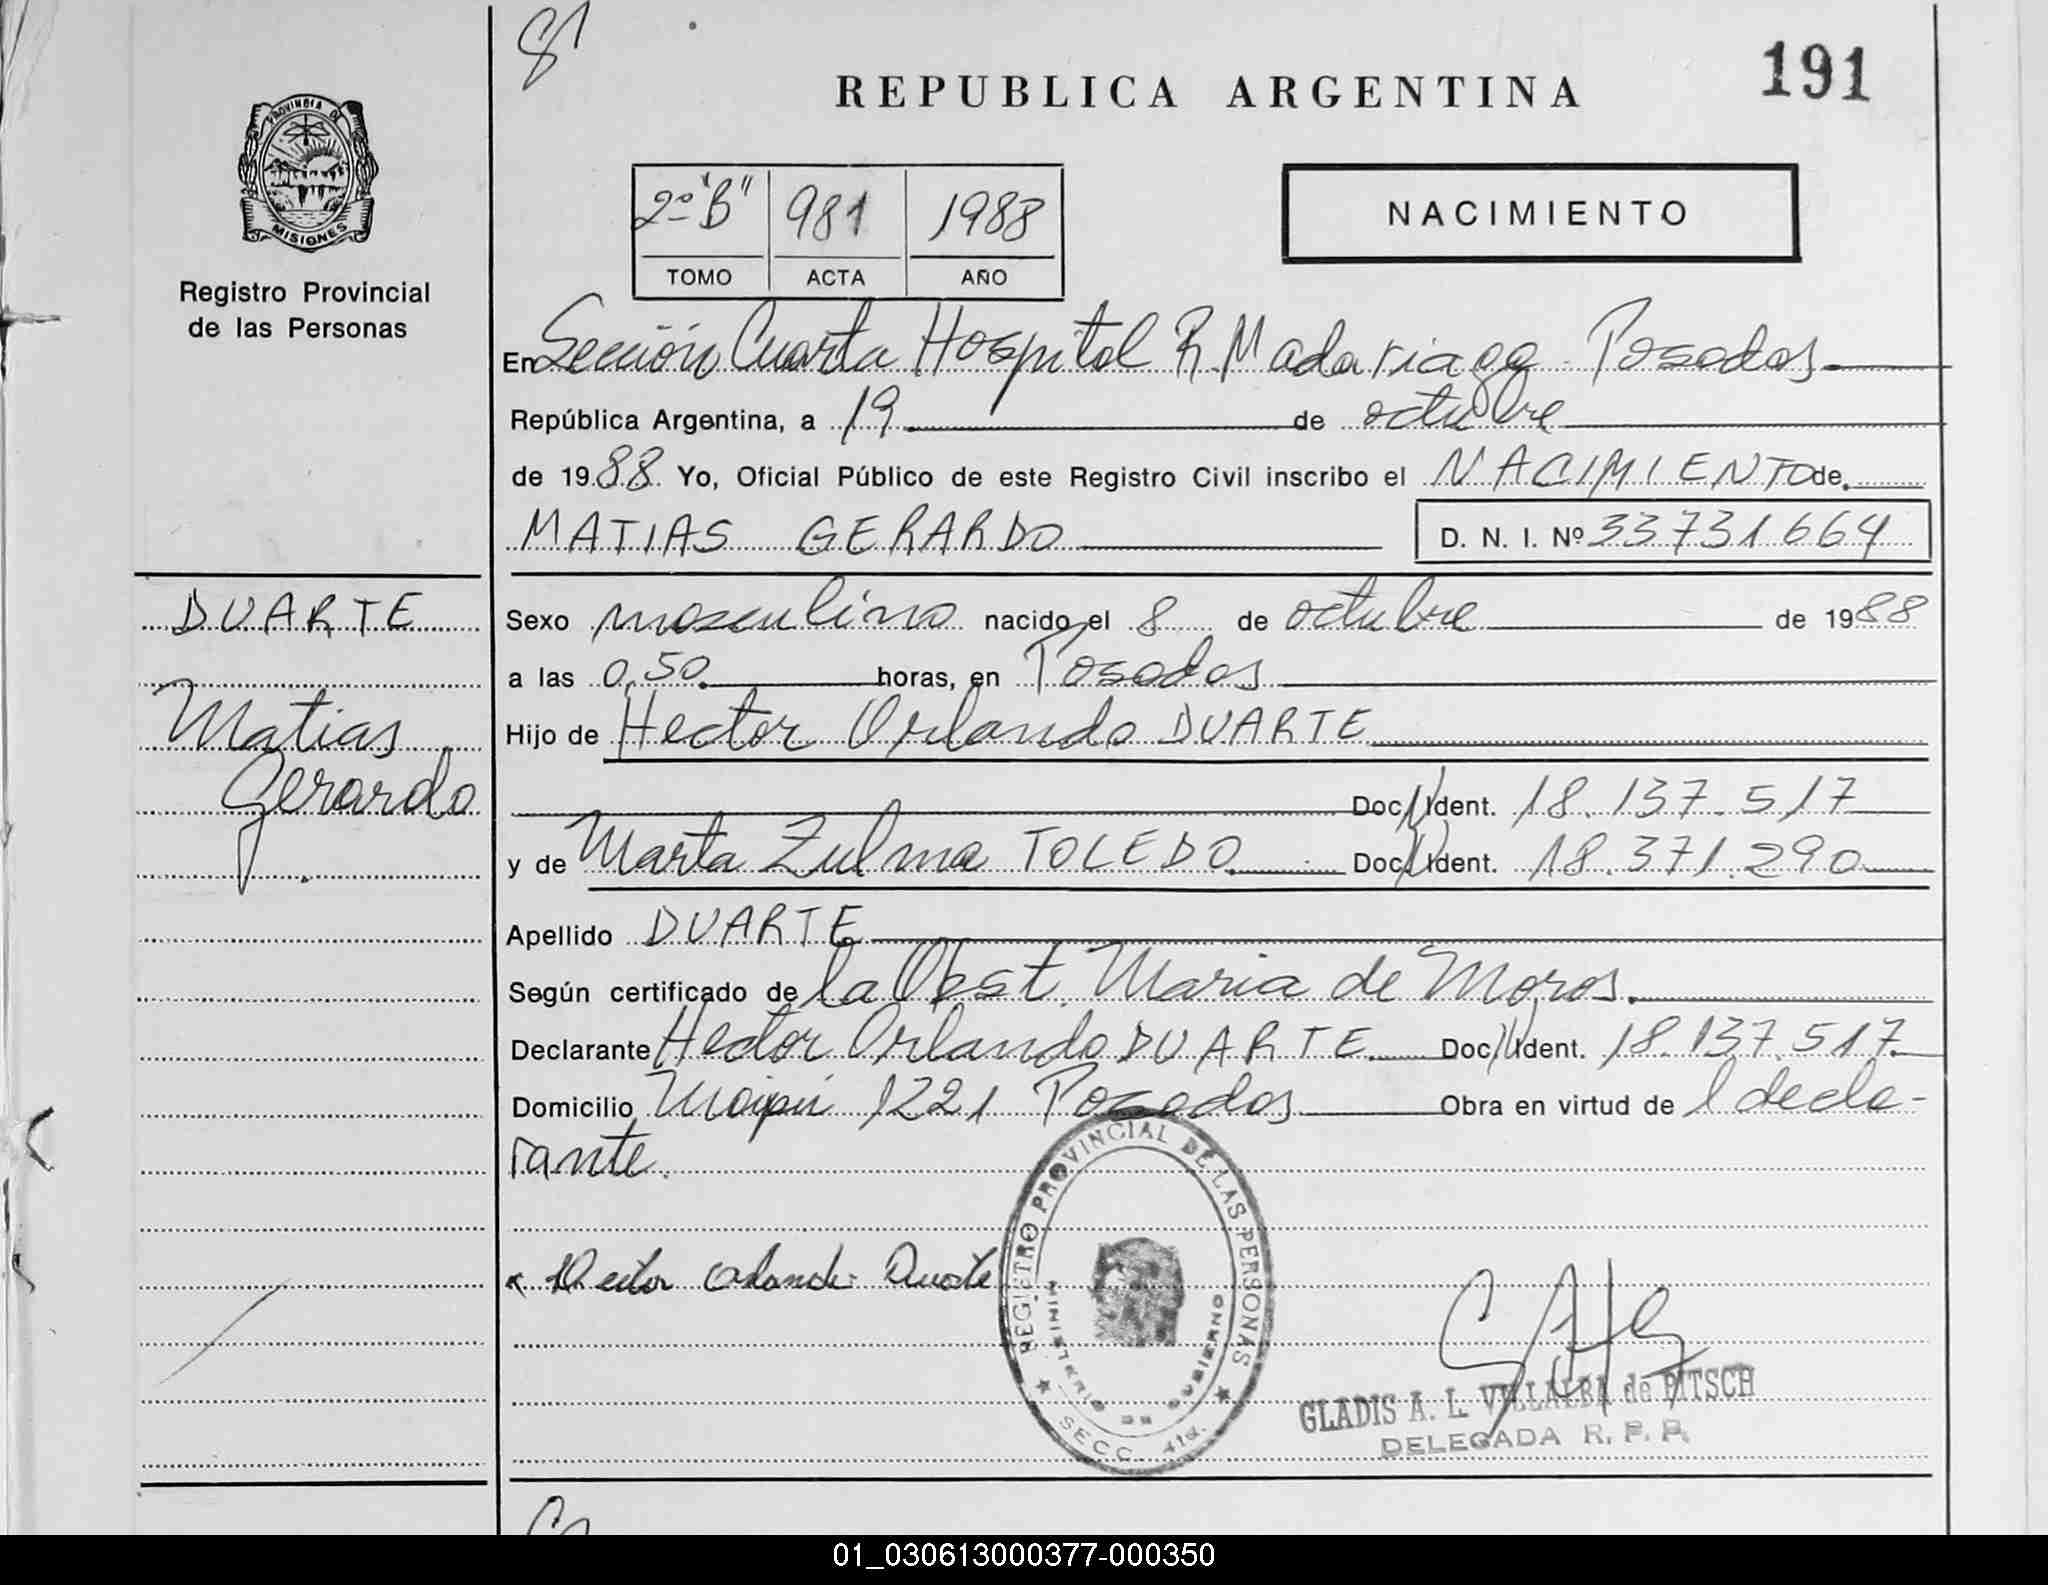 81
191
REPUBLICA ARGENTINA
PROVINCIA DE
MISIONES
Registro Provincial
de las Personas
2º "B" 981 1988
TOMO ACTA AÑO
NACIMIENTO
En Sección Cuarta Hospital R. Madariaga - Posadas
República Argentina, a 19 de octubre
de 1988 Yo, Oficial Público de este Registro Civil inscribo el NACIMIENTO de
MATIAS GERARDO D. N. I. Nº 33731664
DUARTE
Matias
Gerardo
Sexo masculino nacido el 8 de octubre de 1988
a las 0,50 horas, en Posadas
Hijo de Hector Orlando DUARTE
Doc. Ident. 18.137.517
y de Marta Zulma TOLEDO Doc. Ident. 18.371.290
Apellido DUARTE
Según certificado de la Obst. Maria de Moros
Declarante Hector Orlando DUARTE Doc. Ident. 18.137.517
Domicilio Maipú 1221 Posadas Obra en virtud de l decla-
rante.
Hector Orlando Duarte
REGISTRO PROVINCIAL DE LAS PERSONAS
MINISTERIO DE GOBIERNO
SECC. 4ta.
GLADIS A. L. VILLALBA de PITSCH
DELEGADA R. P. P.
01_030613000377-000350